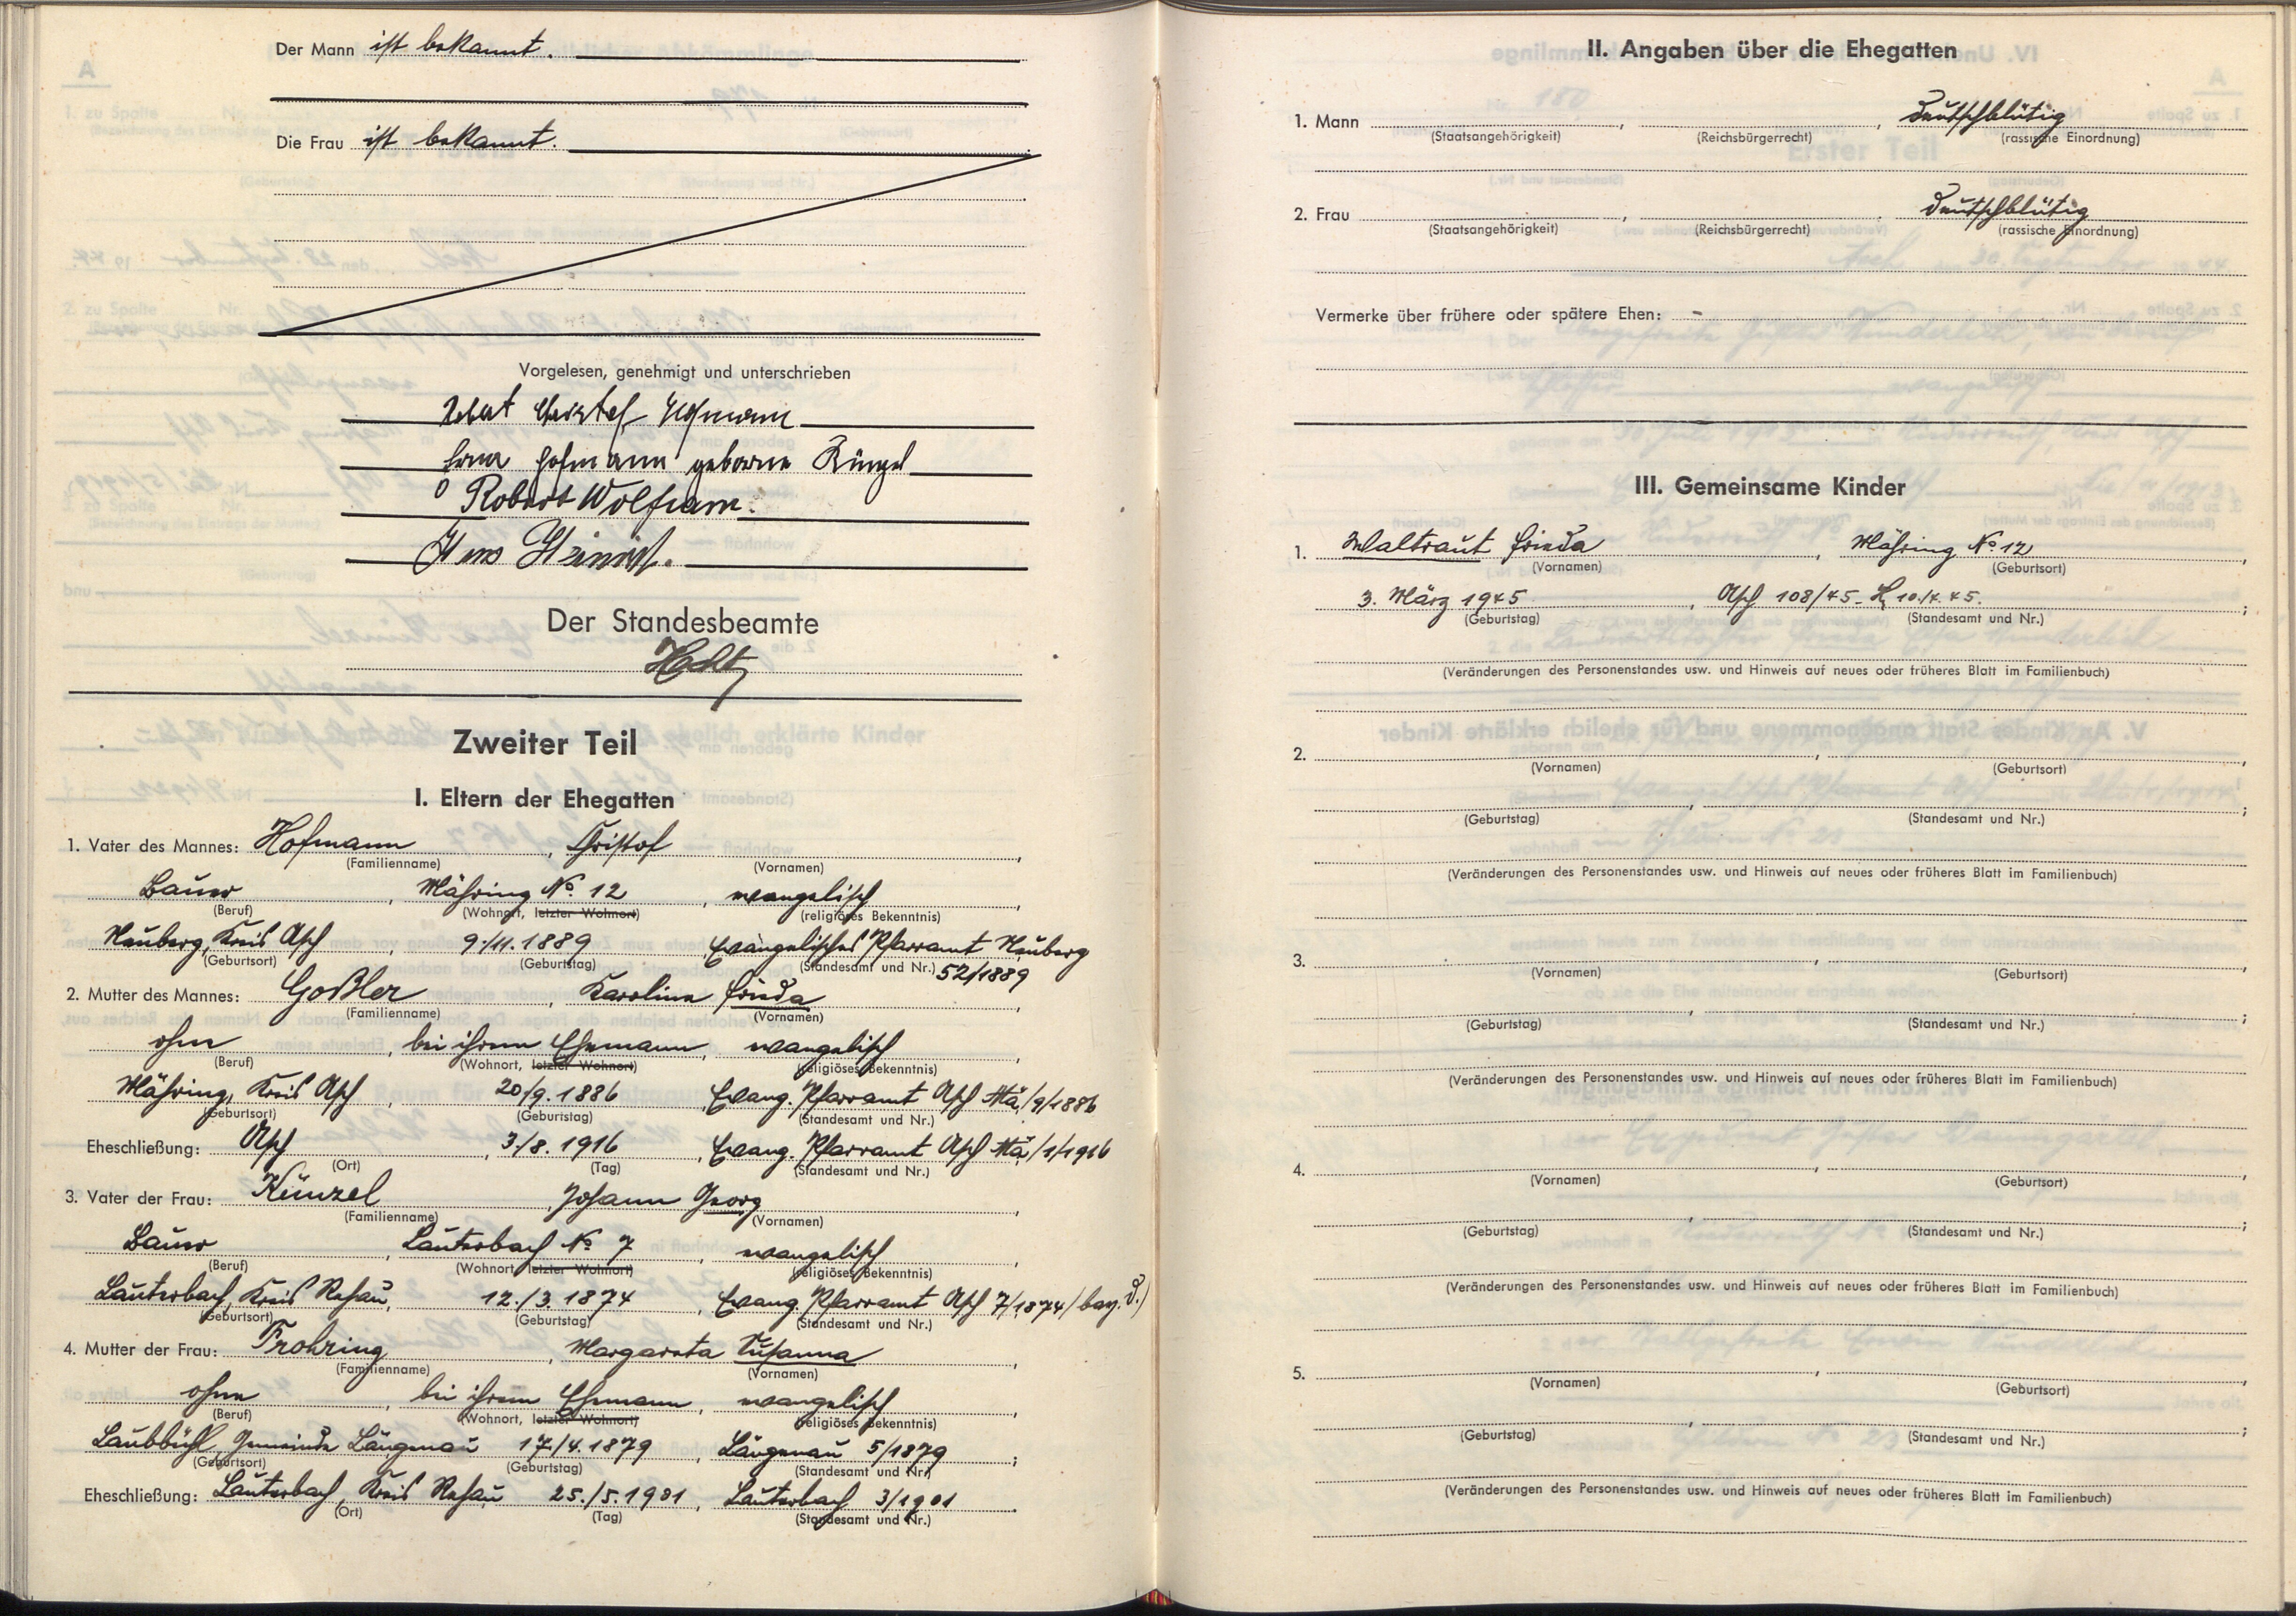 Der Mann ist bekannt.
Die Frau ist bekannt.
Vorgelesen, genehmigt und unterschrieben
Robert Christof Hofmann
Erna Hofmann geborene Künzel
Robert Wolfram.
Der Standesbeamte
Zweiter Teil
I. Eltern der Ehegatten
1. Vater des Mannes: Hofmann, Christof
(Familienname) (Vornamen)
Bauer, Mähring No. 12, evangelisch
(Beruf) (Wohnort, letzter Wohnort) (religiöses Bekenntnis)
Neuberg, Kreis Asch 9./11.1889 Evangelisches Pfarramt Neuberg
(Geburtsort) (Geburtstag) (Standesamt und Nr.) 52/1889
2. Mutter des Mannes: Goßler, Karolina Frieda
(Familienname) (Vornamen)
ohne, bei ihrem Ehemann, evangelisch
(Beruf) (Wohnort, letzter Wohnort) (religiöses Bekenntnis)
Mähring, Kreis Asch, 20/9.1886, Evang. Pfarramt Asch Mä/9/1886
(Geburtsort) (Geburtstag) (Standesamt und Nr.)
Eheschließung: Asch, 3./8. 1916, Evang. Pfarramt Asch Mä/1/1916
(Ort) (Tag) (Standesamt und Nr.)
3. Vater der Frau: Künzel, Johann Georg
(Familienname) (Vornamen)
Bauer, Lauterbach No. 7, evangelisch
(Beruf) (Wohnort, letzter Wohnort) (religiöses Bekenntnis)
Lauterbach, Kreis Rehau, 12./3. 1874, Evang. Pfarramt Asch 7/1874/bay.
(Geburtsort) (Geburtstag) (Standesamt und Nr.)
4. Mutter der Frau: Frohring, Margareta Susanna
(Familienname) (Vornamen)
ohne, bei ihrem Ehemann, evangelisch
(Beruf) (Wohnort, letzter Wohnort) (religiöses Bekenntnis)
Laubbühl, Gemeinde Längenau 17./4.1879, Längenau 5/1879;
(Geburtsort) (Geburtstag) (Standesamt und Nr.)
Eheschließung: Lauterbach, Kreis Rehau 25./5.1901, Lauterbach 3/1901.
(Ort) (Tag) (Standesamt und Nr.)
II. Angaben über die Ehegatten
1. Mann , , deutschblütig
(Staatsangehörigkeit) (Reichsbürgerrecht) (rassische Einordnung)
2. Frau , , deutschblütig
(Staatsangehörigkeit) (Reichsbürgerrecht) (rassische Einordnung)
Vermerke über frühere oder spätere Ehen: -
III. Gemeinsame Kinder
1. Waltraut Frieda, Mähring No. 12,
(Vornamen) (Geburtsort)
3. März 1945, Asch 108/45 10./4.45.;
(Geburtstag) (Standesamt und Nr.)
(Veränderungen des Personenstandes usw. und Hinweis auf neues oder früheres Blatt im Familienbuch)
2. , ,
(Vornamen) (Geburtsort)
, ;
(Geburtstag) (Standesamt und Nr.)
(Veränderungen des Personenstandes usw. und Hinweis auf neues oder früheres Blatt im Familienbuch)
3. , ,
(Vornamen) (Geburtsort)
, ;
(Geburtstag) (Standesamt und Nr.)
(Veränderungen des Personenstandes usw. und Hinweis auf neues oder früheres Blatt im Familienbuch)
4. , ,
(Vornamen) (Geburtsort)
, ;
(Geburtstag) (Standesamt und Nr.)
(Veränderungen des Personenstandes usw. und Hinweis auf neues oder früheres Blatt im Familienbuch)
5. , ,
(Vornamen) (Geburtsort)
, ;
(Geburtstag) (Standesamt und Nr.)
(Veränderungen des Personenstandes usw. und Hinweis auf neues oder früheres Blatt im Familienbuch)